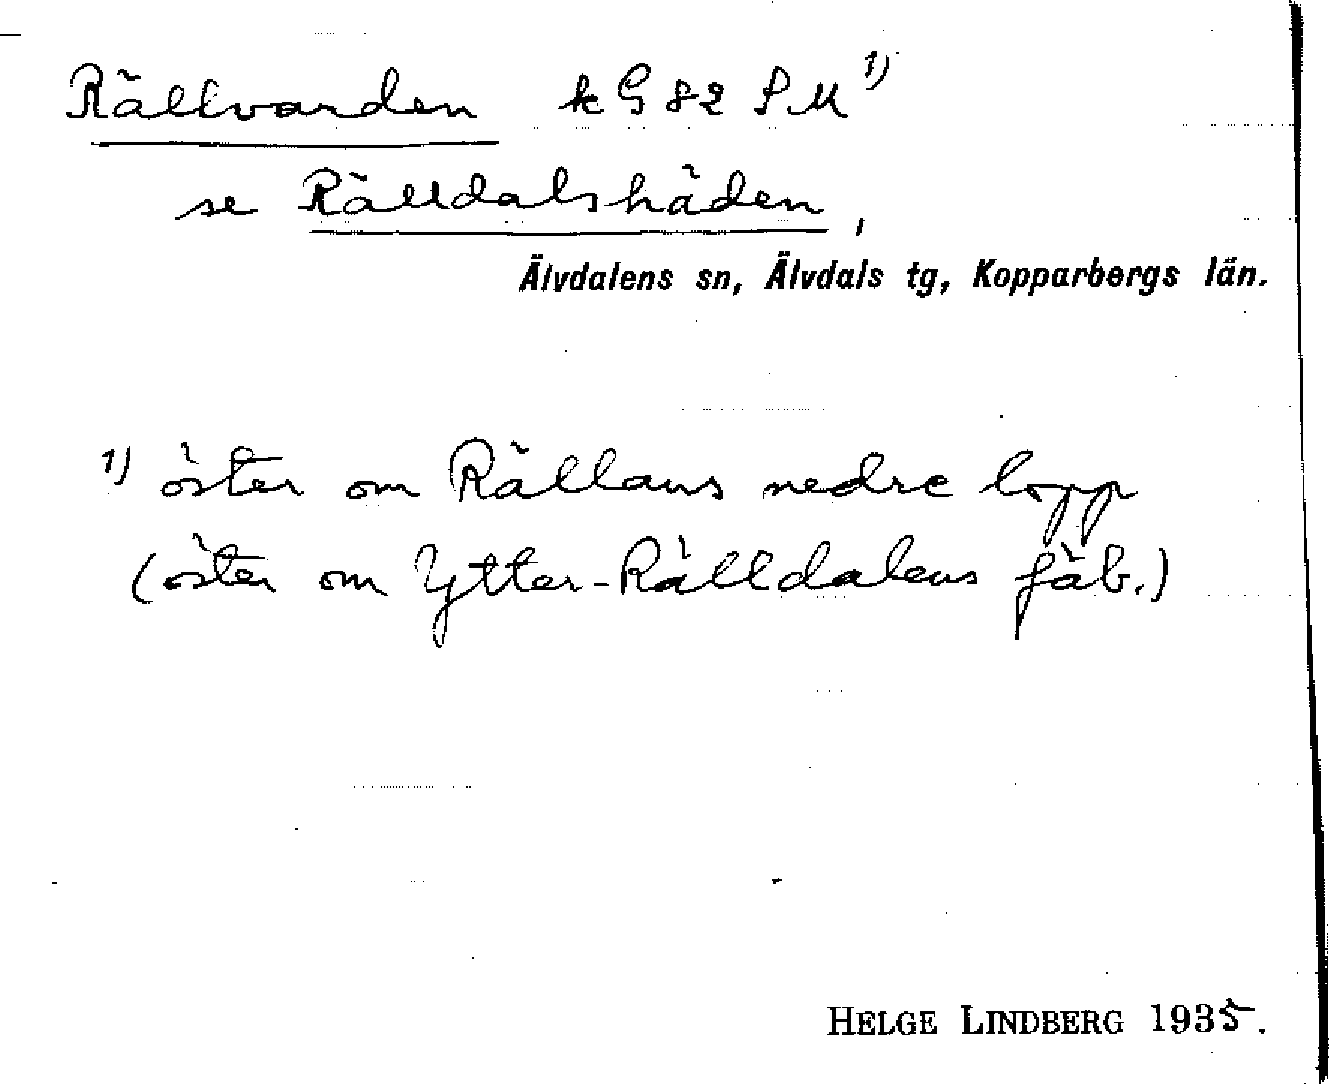 Rällvarden k G 82 S M 1)
se Rälldalshäden,
Älvdalens sn, Älvdals tg, Kopparbergs län.
1) öster om Rällans nedre lopp
(öster om Ytter-Rälldalens fäb.)
HELGE LINDBERG 1935.